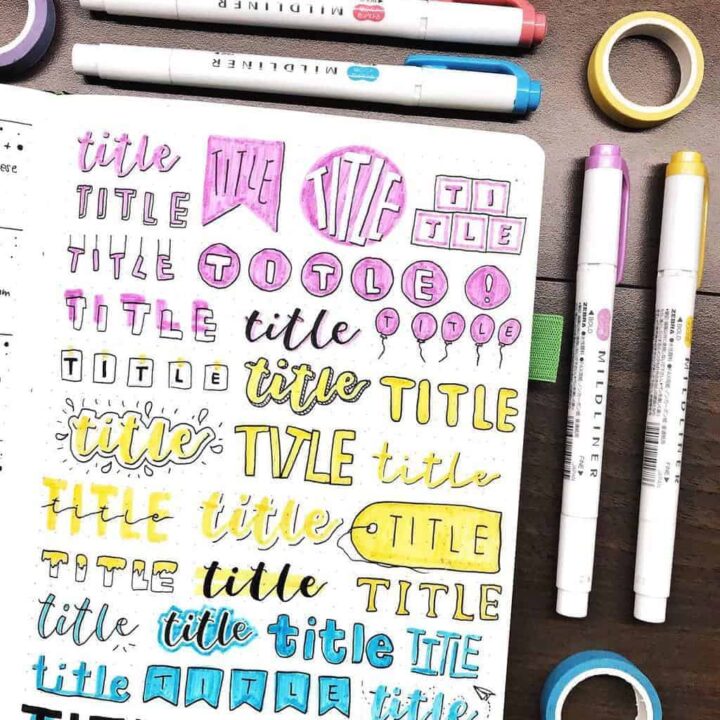 MILDLINER
MILDLINER
title TITLE TITLE TI
TLE
TITLE
TITLE TITLE!
TITLE title TITLE
TITLE title TITLE
title TITLE title
TITLE title TITLE
TITLE title TITLE
title title title TITLE
title TITLE title
TITLE
BOLD ZEBRA MILDLINER FINE
BOLD ZEBRA MILDLINER FINE